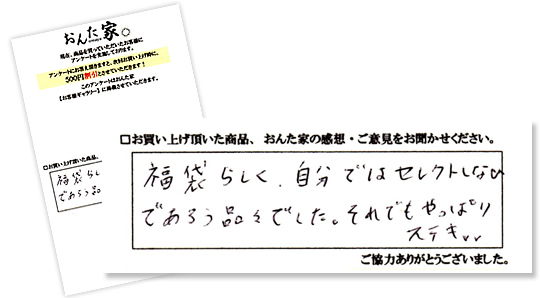 おんた家。
現在、商品を買っていただいたお客様に
アンケートを実施しております。
アンケートにお答え頂きますと、次回お買い上げ時に、
500円割引とさせていただきます！
このアンケートはおんた家
【お客様ギャラリー】に掲載させていただきます。
□お買い上げ頂いた商品、
福袋らし
であろう品
□お買い上げ頂いた商品、おんた家の感想・ご意見をお聞かせください。
福袋らしく、自分ではセレクトしない
であろう品々でした。それでもやっぱり
ステキ
ご協力ありがとうございました。